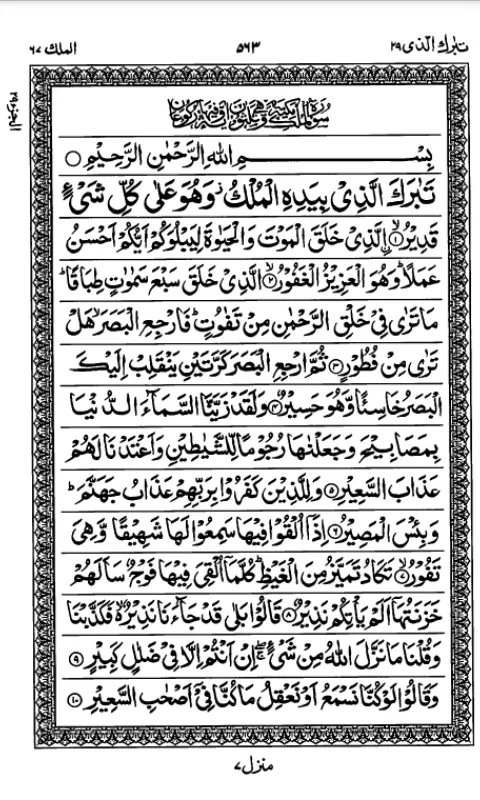 تبٰرك الذی ٢٩
٥٦٣
الملك ٦٧
بِسْمِ اللهِ الرَّحْمٰنِ الرَّحِيْمِ
تَبٰرَكَ الَّذِیْ بِيَدِهِ الْمُلْكُ ز وَهُوَ عَلٰی كُلِّ شَیْءٍ
قَدِيْرُ ۨ ﴿١﴾ الَّذِیْ خَلَقَ الْمَوْتَ وَالْحَيٰوةَ لِيَبْلُوَكُمْ اَيُّكُمْ اَحْسَنُ
عَمَلًا ؕ وَهُوَ الْعَزِيْزُ الْغَفُوْرُ ﴿٢﴾ الَّذِیْ خَلَقَ سَبْعَ سَمٰوٰتٍ طِبَاقًا ؕ
مَا تَرٰی فِیْ خَلْقِ الرَّحْمٰنِ مِنْ تَفٰوُتٍ ؕ فَارْجِعِ الْبَصَرَ هَلْ
تَرٰی مِنْ فُطُوْرٍ ﴿٣﴾ ثُمَّ ارْجِعِ الْبَصَرَ كَرَّتَيْنِ يَنْقَلِبْ اِلَيْكَ
الْبَصَرُ خَاسِئًا وَّهُوَ حَسِيْرٌ ﴿٤﴾ وَلَقَدْ زَيَّنَّا السَّمَآءَ الدُّنْيَا
بِمَصَابِيْحَ وَجَعَلْنٰهَا رُجُوْمًا لِّلشَّيٰطِيْنِ وَاَعْتَدْنَا لَهُمْ
عَذَابَ السَّعِيْرِ ﴿٥﴾ وَلِلَّذِيْنَ كَفَرُوْا بِرَبِّهِمْ عَذَابُ جَهَنَّمَ ؕ
وَبِئْسَ الْمَصِيْرُ ﴿٦﴾ اِذَاۤ اُلْقُوْا فِيْهَا سَمِعُوْا لَهَا شَهِيْقًا وَّهِیَ
تَفُوْرُ ﴿٧﴾ تَكَادُ تَمَيَّزُ مِنَ الْغَيْظِ ؕ كُلَّمَاۤ اُلْقِیَ فِيْهَا فَوْجٌ سَاَلَهُمْ
خَزَنَتُهَاۤ اَلَمْ يَاْتِكُمْ نَذِيْرٌ ﴿٨﴾ قَالُوْا بَلٰی قَدْ جَآءَنَا نَذِيْرٌ فَكَذَّبْنَا
وَقُلْنَا مَا نَزَّلَ اللهُ مِنْ شَیْءٍ ۚ اِنْ اَنْتُمْ اِلَّا فِیْ ضَلٰلٍ كَبِيْرٍ ﴿٩﴾
وَقَالُوْا لَوْ كُنَّا نَسْمَعُ اَوْ نَعْقِلُ مَا كُنَّا فِیْۤ اَصْحٰبِ السَّعِيْرِ ﴿١٠﴾
منزل ٧